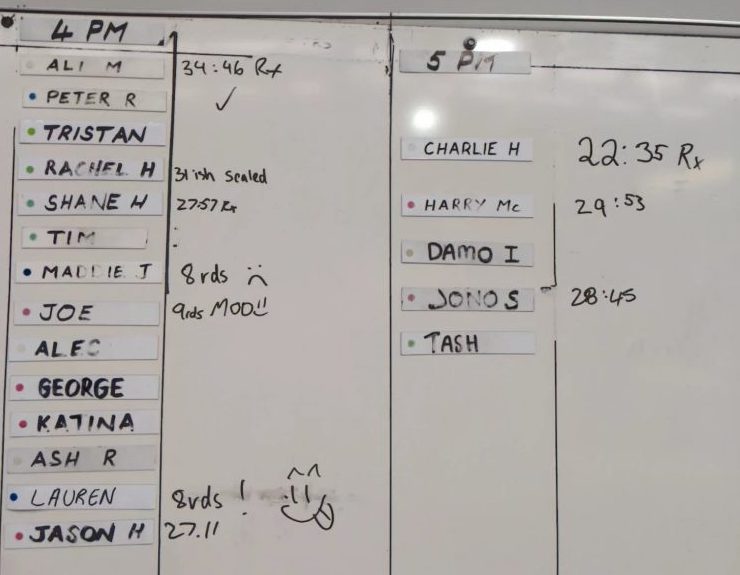 4 PM
ALI M 34:46 Rx
PETER R
TRISTAN
RACHEL H 31ish scaled
SHANE H 27:57 Rx
TIM
MADDIE J 8rds
JOE 9rds MOD
ALEC
GEORGE
KATINA
ASH R
LAUREN 8rds !
JASON H 27.11
5 PM
CHARLIE H 22:35 Rx
HARRY Mc 29:53
DAMO I
JONO S 28:45
TASH